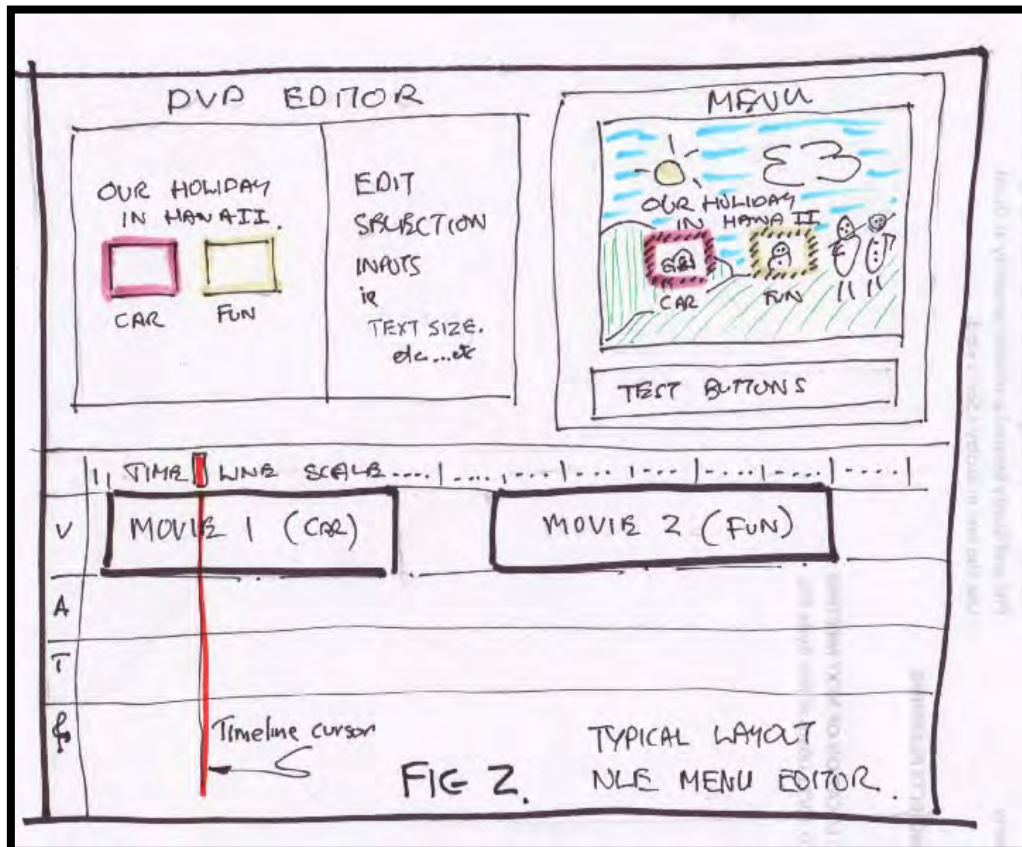 DVD EDITOR
OUR HOLIDAY
IN HAWAII.
CAR
FUN
EDIT
SELECTION
INPUTS
ie
TEXT SIZE.
etc....etc
MENU
OUR HOLIDAY
IN HAWAII
CAR
FUN
TEST BUTTONS
TIME LINE SCALE....
V
MOVIE 1 (CAR)
MOVIE 2 (FUN)
A
T
Timeline cursor
FIG 2.
TYPICAL LAYOUT
NLE MENU EDITOR.